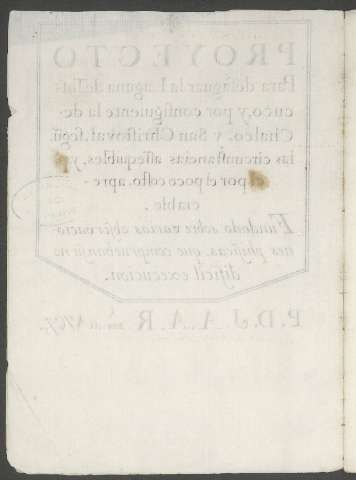 PROYECTO
Para desaguar la Laguna de Tez-
cuco, y por consiguiente la de
Chalco, y San Christoval, segũ
las circunstancias assequibles, y
por el poco costo, apre-
ciable.
Fundado sobre varias observacio
nes phisicas, que comprueban su no
dificil execucion.
P. D. J. A. A. R. de 1767.